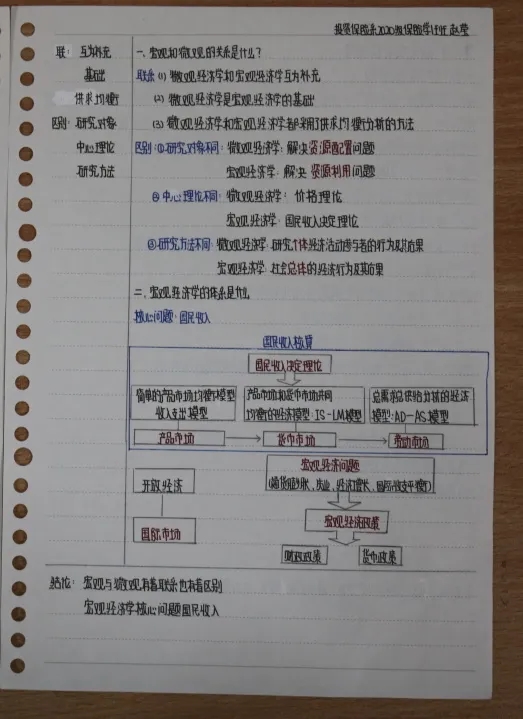 投资保险系2020级保险学1班 赵莹
联: 互为补充
基础
供求均衡
区别: 研究对象
中心理论
研究方法
一、宏观和微观的关系是什么?
联系 (1) 微观经济学和宏观经济学互为补充
(2) 微观经济学是宏观经济学的基础
(3) 微观经济学和宏观经济学都采用了供求均衡分析的方法
区别: ①研究对象不同: 微观经济学: 解决资源配置问题
宏观经济学: 解决 资源利用问题
② 中心理论不同: 微观经济学: 价格理论
宏观经济学: 国民收入决定理论
③研究方法不同: 微观经济学: 研究个体经济活动参与者的行为及其后果
宏观经济学: 社会总体的经济行为及其后果
二、宏观经济学的体系是什么
核心问题: 国民收入
国民收入核算
国民收入决定理论
简单的产品市场均衡模型
收入支出模型
产品市场和货币市场共同
均衡的经济模型: IS-LM模型
总需求总供给分析的经济
模型: AD-AS模型
产品市场
货币市场
劳动市场
开放经济
国际市场
宏观经济问题
(通货膨胀、失业、经济增长、国际收支平衡)
宏观经济政策
财政政策
货币政策
结论: 宏观与微观有着联系也有着区别
宏观经济学核心问题国民收入